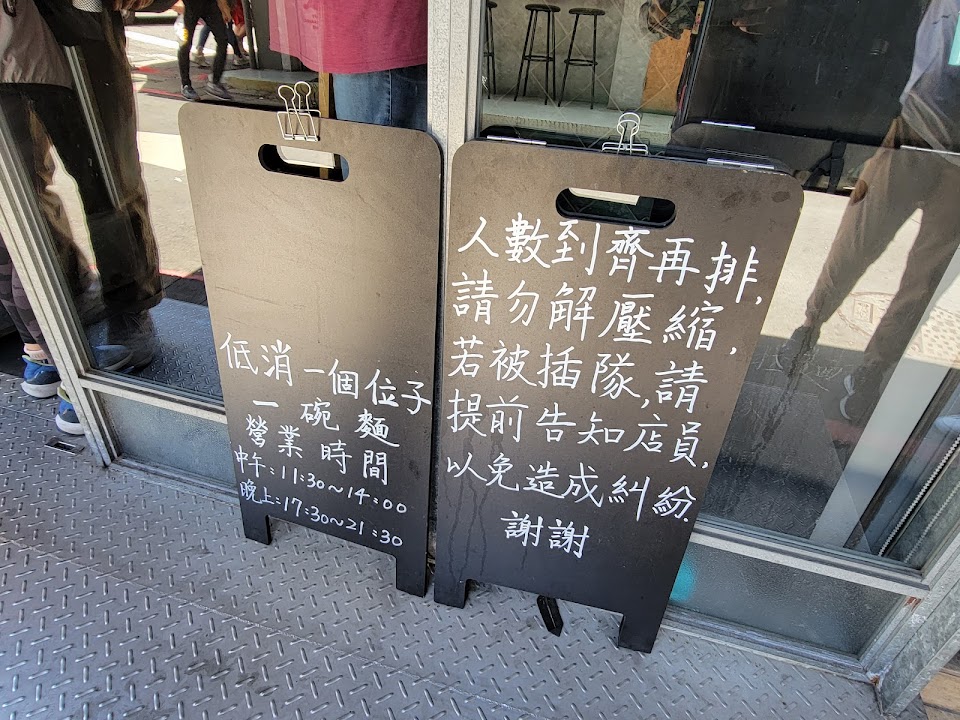 低消一個位子
一碗麵
營業時間
中午:11:30~14:00
晚上:17:30~21:30
人數到齊再排,
請勿解壓縮,
若被插隊,請
提前告知店員,
以免造成糾紛.
謝謝